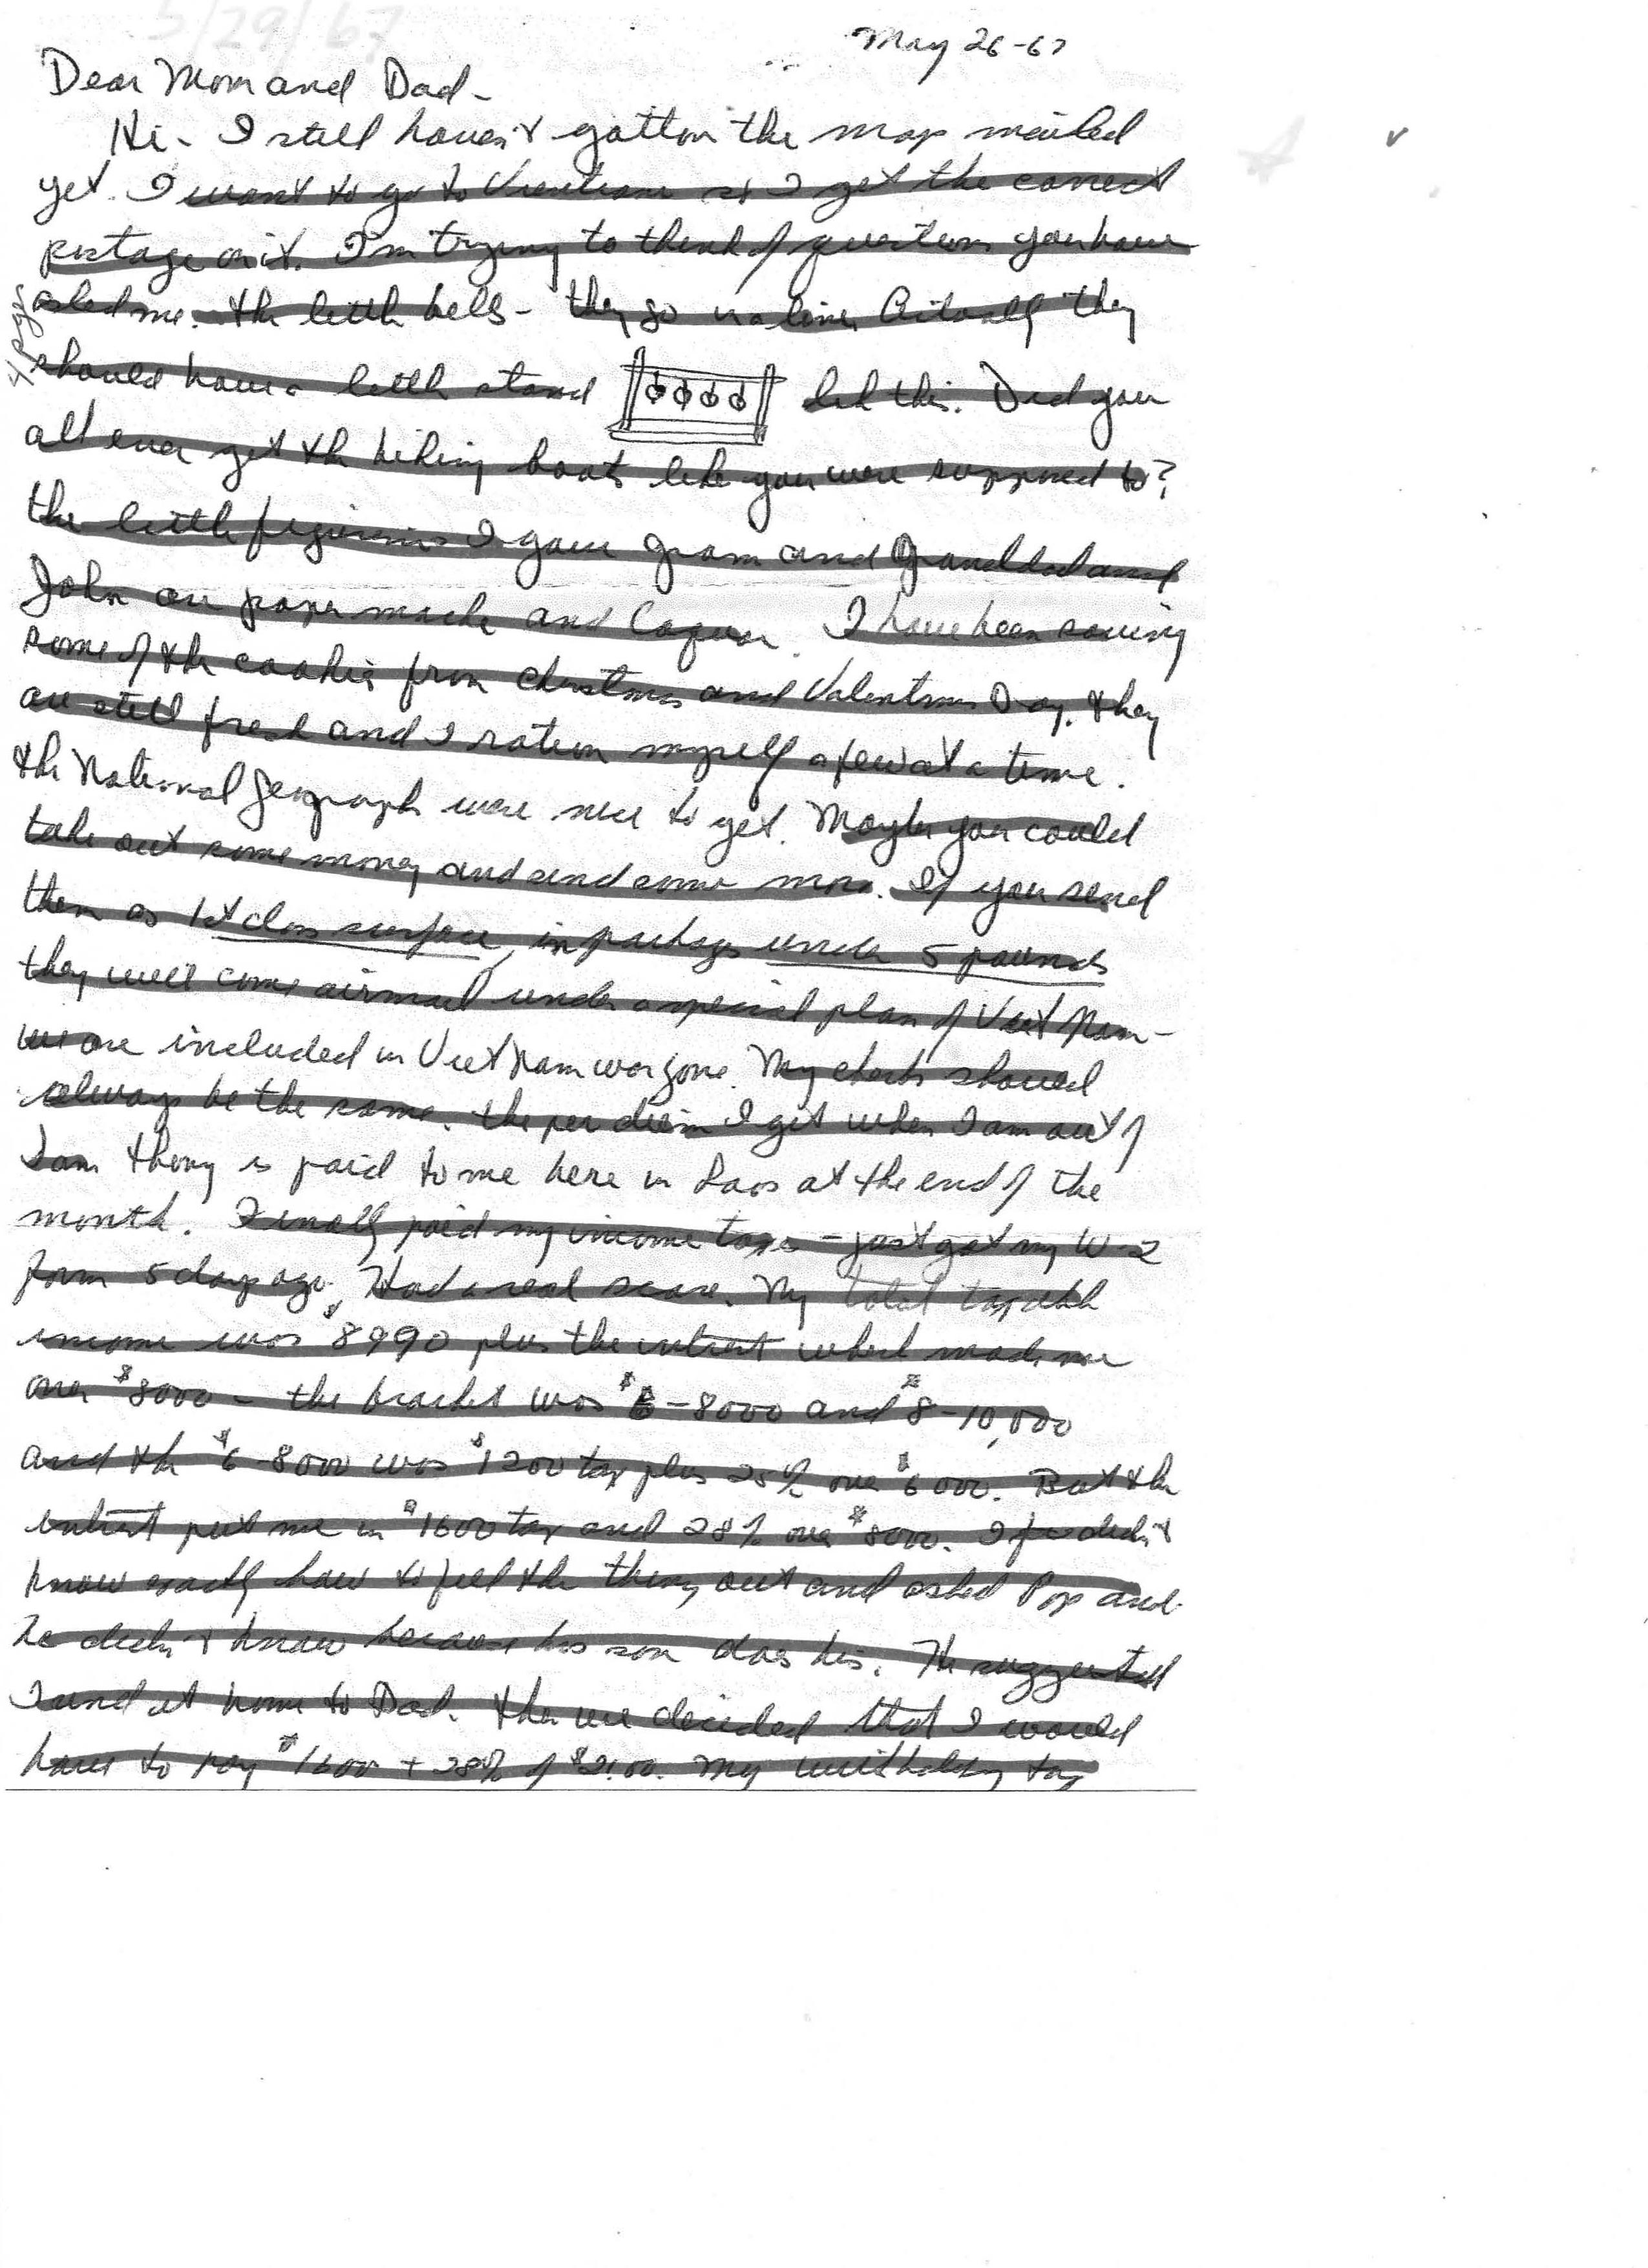 5/29/67
May 26-67
Dear Mom and Dad-
Hi- I still haven't gotten the map mailed
yet. I want to go to Vientiane so I get the correct
postage on it. I'm trying to think of questions you have
asked me. the little bells - they go in a line. Actually they
4 pgs
should have a little stand like this. Did you
all ever get the hiking boots like you were supposed to?
the little figurines I gave Gram and Granddad and
John are paper mache and Laquer. I have been saving
some of the cookies from Christmas and Valentines Day. they
are still fresh and I ration myself a few at a time.
the National Geograph were nice to get. Maybe you could
take out some money and send some more. If you send
them as 1st class surface, in packages under 5 pounds
they will come airmail under a special plan of Viet Nam-
we are included in Viet Nam war zone. My checks should
always be the same. the per diem I get when I am out of
Sam thong is paid to me here in Laos at the end of the
month. Finally paid my income taxes - just got my W-2
form 5 days ago. Had a real scare. My total taxable
income was $8990 plus the intrest which made me
over $8000 - the bracket was $6-8000 and $8-10,000
and the $6-8000 was $1200 tax plus 25% over $6000. But the
intrest put me in $1600 tax and 28% over $8000. I didn't
know exactly how to fill the thing out and asked Pop and
he didn't know because his son does his. He suggested
I send it home to Dad. then we decided that I would
have to pay $1600 + 28% of $21.00. My witholding tax